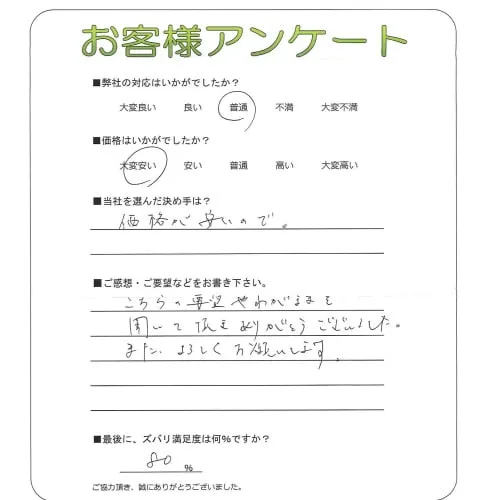 お客様アンケート
■弊社の対応はいかがでしたか？
大変良い 良い 普通 不満 大変不満
■価格はいかがでしたか？
大変安い 安い 普通 高い 大変高い
■当社を選んだ決め手は？
価格が安いので。
■ご感想・ご要望などをお書き下さい。
こちらの要望やわがままを
聞いて頂きありがとうございました。
また、よろしくお願いします。
■最後に、ズバリ満足度は何%ですか？
80 %
ご協力頂き、誠にありがとうございました。